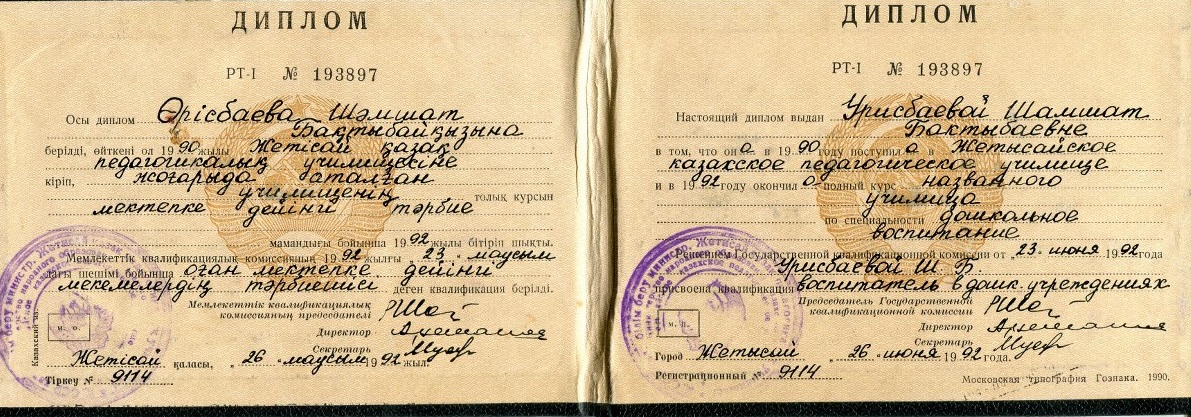 ДИПЛОМ
РТ-I № 193897
Осы диплом Өрісбаева Шәмшат
Бақтыбайқызына
берілді, өйткені ол 1990 жылы Жетісай қазақ
педагогикалық училищесіне
кіріп, жоғарыда аталған
училищенің толық курсын
мектепке дейінгі тәрбие
мамандығы бойынша 1992 жылы бітіріп шықты.
Мемлекеттік квалификациялық комиссияның 1992 жылғы 23 маусым
дағы шешімі бойынша оған мектепке дейінгі
мекемелердің тәрбиешісі деген квалификация берілді.
Мемлекеттік квалификациялық
комиссияның председателі
Директор
Секретарь
М. О.
Жетісай қаласы, „26" маусым 1992 жыл.
Тіркеу № 9114
ДИПЛОМ
РТ-I № 193897
Настоящий диплом выдан Урисбаевой Шамшат
Бактыбаевне
в том, что она в 1990 году поступила в Жетысайское
казахское педагогическое училище
и в 1992 году окончила полный курс названного
училища
по специальности дошкольное
воспитание
Решением Государственной квалификационной комиссии от 23. июня 1992 года
Урисбаевой Ш. Б
присвоена квалификация воспитатель в дошк. учреждениях
Председатель Государственной
квалификационной комиссии
Директор
Секретарь
М. П.
Город Жетысай „26" июня 1992 года.
Регистрационный № 9114
Московская типография Гознака. 1990.